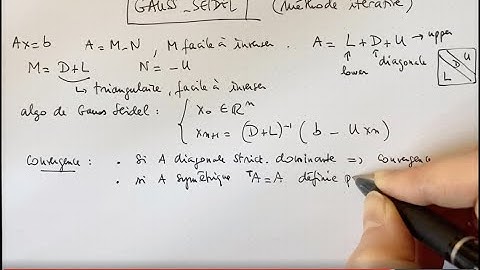 GAUSS_SEIDEL (méthode itérative)
Ax=b A=M-N, M facile à inverser. A = L+D+U → upper
M = D+L N = -U ↑ lower ↑ diagonale L D U
↳ triangulaire, facile à inverser
algo de Gauss Seidel : { x₀ ∈ ℝⁿ
xₙ₊₁ = (D+L)⁻¹ ( b - U xₙ )
Convergence : • Si A diagonale strict. dominante => convergence
• si A symétrique ᵀA = A définie p